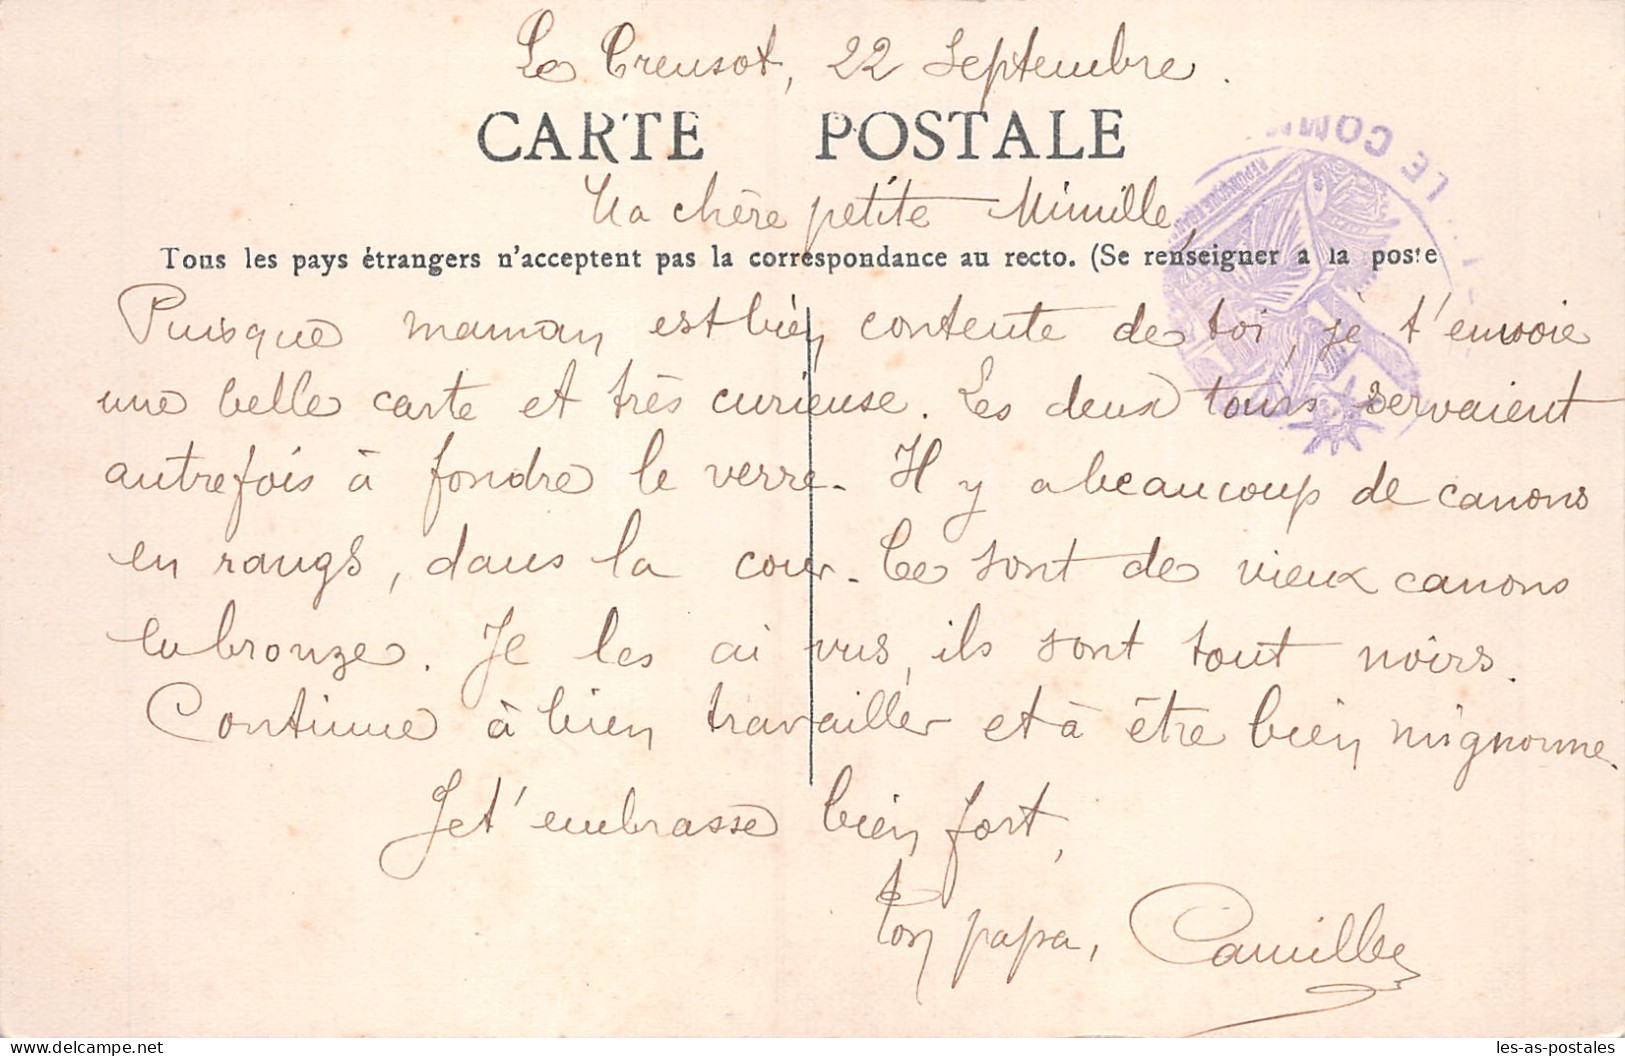 Le Creusot, 22 Septembre.
CARTE POSTALE
Ma chère petite Mimille,
Tous les pays étrangers n'acceptent pas la correspondance au recto. (Se renseigner a la poste
Puisque maman est bien contente de toi, je t'envoie
une belle carte et très curieuse. Les deux tours servaient
autrefois à fondre le verre. Il y a beaucoup de canons
en rangs, dans la cour. Ce sont de vieux canons
en bronze. Je les ai vus, ils sont tout noirs.
Continue à bien travailler et à être bien mignonne.
Je t'embrasse bien fort,
Ton papa, Camille
LE COMM
les-as-postales
delcampe.net